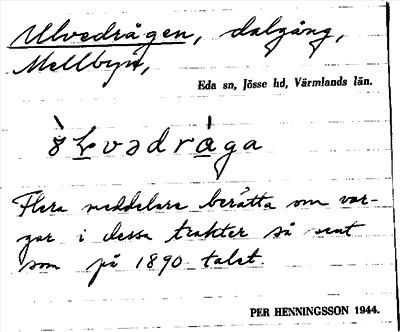 Ulvedrågen, dalgång,
Mellbyn,
Eda sn, Jösse hd, Värmlands län.
Flera meddelare berätta om var-
gar i dessa trakter så sent
som på 1890 talet.
PER HENNINGSSON 1944.